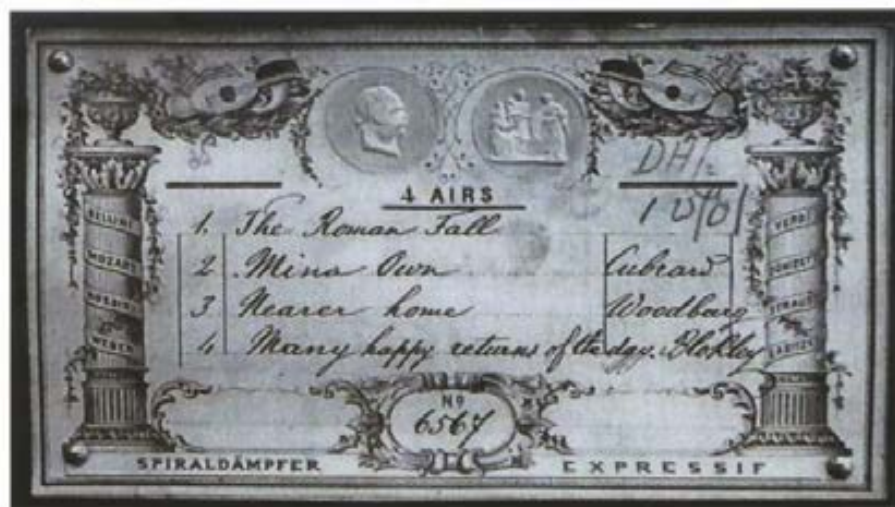 DA/-
4 AIRS
1. The Roman Fall
2 Mina Own Cubrard
3 Nearer home Woodbury
4. Many happy returns of the day. Blokley
BELLINI
MOZART
ROSSINI
WEBER
VERDI
DONIZET
STRAUSS
No
6567
SPIRALDÄMPFER
EXPRESSIF